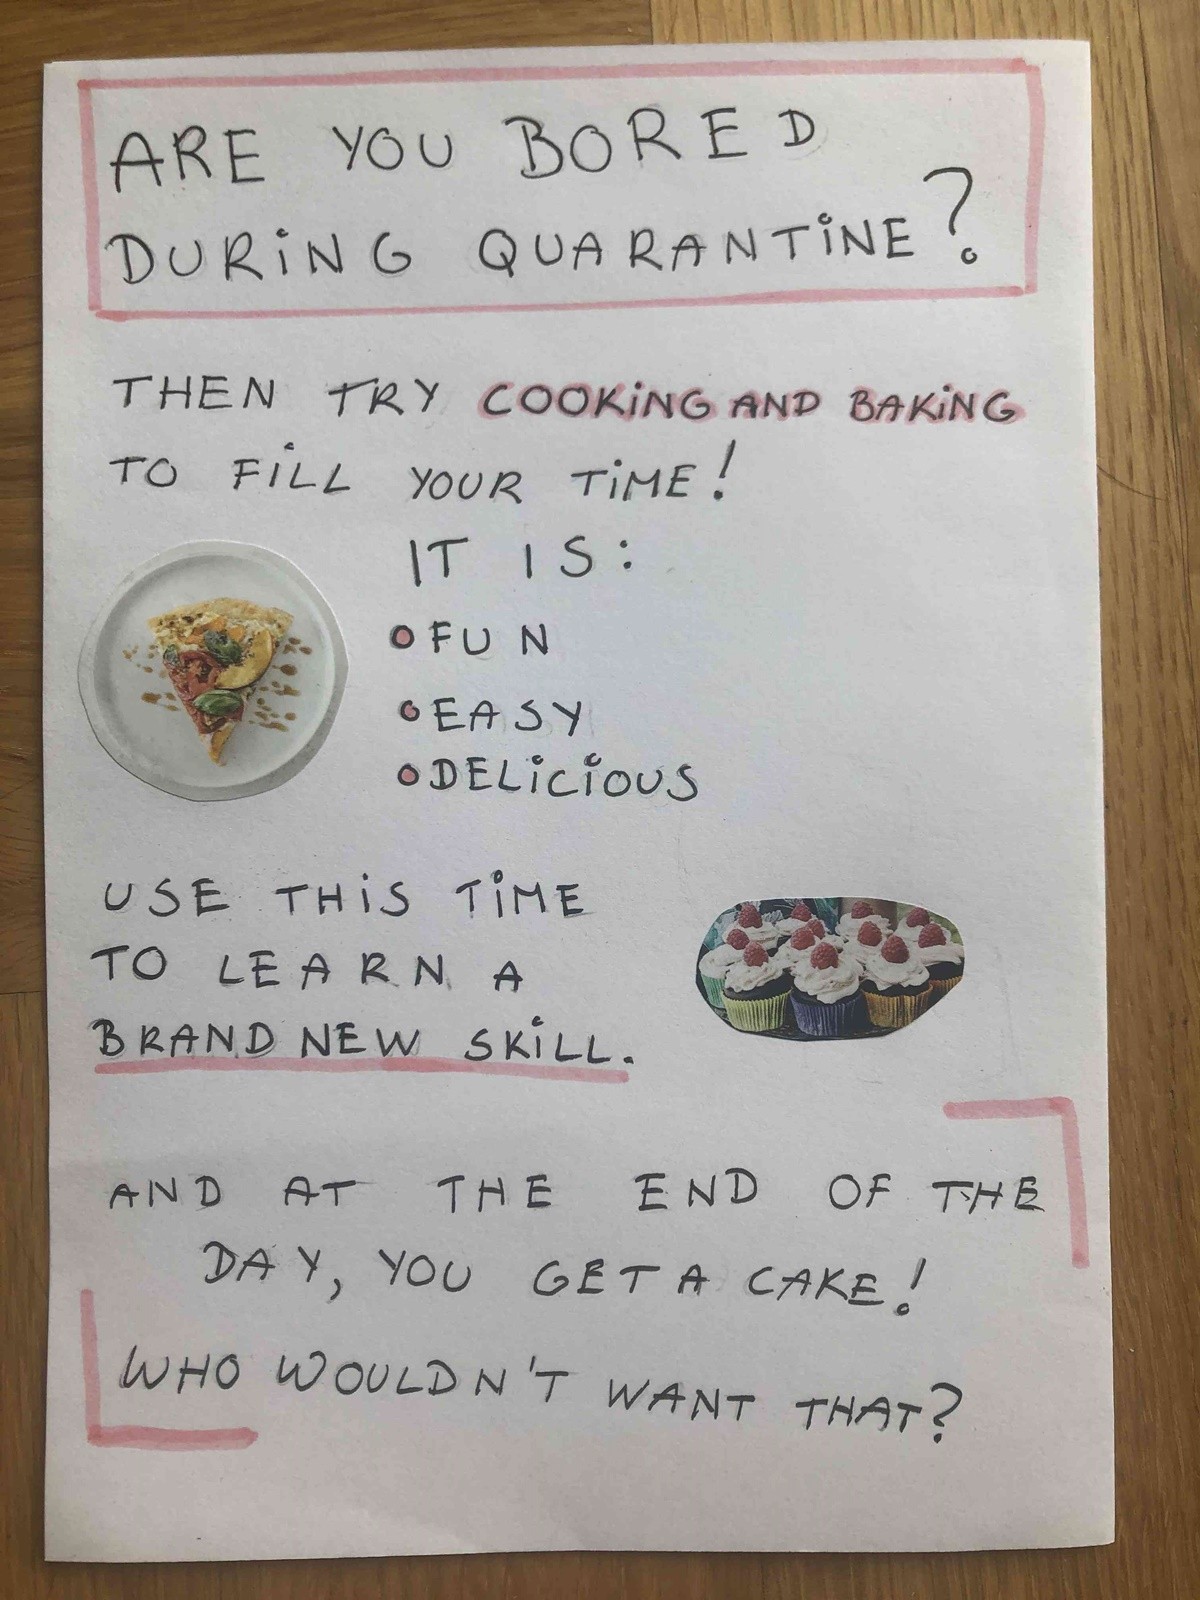 ARE YOU BORED
DURING QUARANTINE?
THEN TRY COOKING AND BAKING
TO FILL YOUR TIME!
IT IS:
• FUN
• EASY
• DELICIOUS
USE THIS TIME
TO LEARN A
BRAND NEW SKILL.
AND AT THE END OF THE
DAY, YOU GET A CAKE!
WHO WOULDN'T WANT THAT?